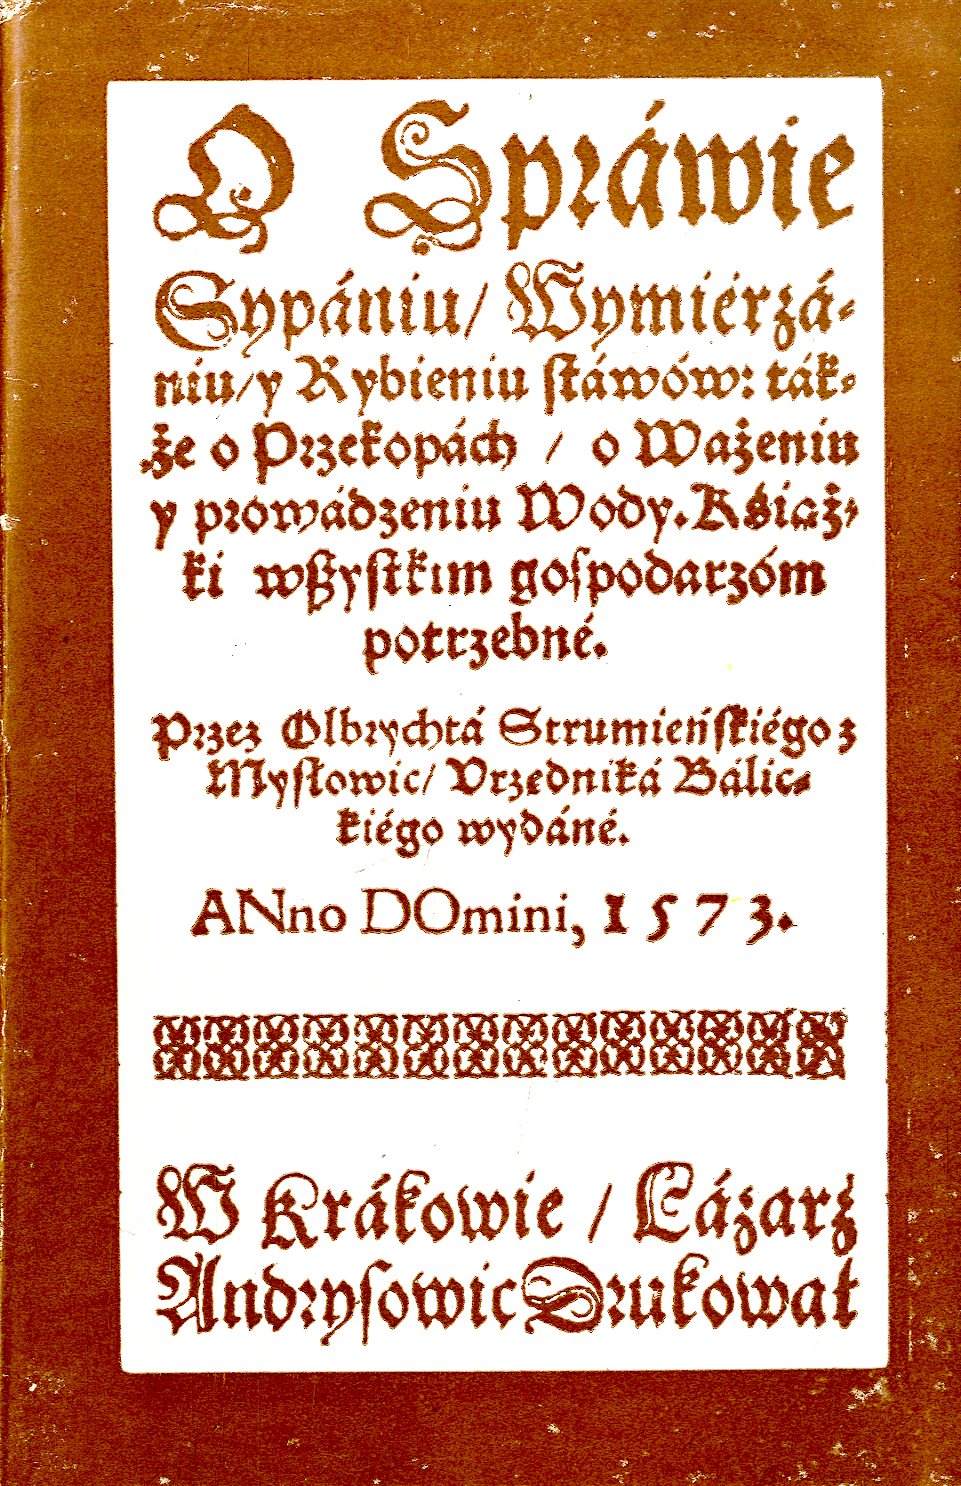 O Spráwie
Sypániu/ Wymiérzá-
niu/y Rybieniu stáwów: ták-
że o Przekopách / o Ważeniu
y prowádzeniu Wody. Kśiąż-
ki wszystkim gospodarzóm
potrzebné.
Przez Olbrychtá Strumieńskiégo z
Mysłowic/ Vrzędniká Bálic-
kiégo wydáné.
ANno DOmini, 1573.
W Krákowie / Łázarz
Andrysowic Drukował